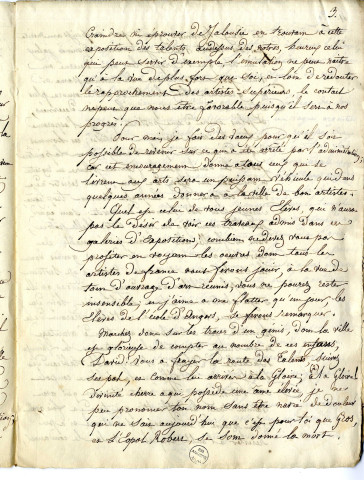 3.
Craindre ni éprouver de Jalousie en trouvant à cette
exposition des talents, audessus des notres, heureux celui
qui peut servir d'exemple l'émulation ne peut naitre
qu'à la vue de plus fort que soi, et loin de redouter
le rapprochement des artistes supérieurs, le contact
ne peut que nous être favorable puisqu'il sert à nos
progrès!
Pour moi, je fais des vœux pour qu'il soit
possible de revenir sur ce qui a été arrêté par l'administration
car cet encouragement donné à tous ceux qui se
livrent aux arts sera un puissant véhicule et dans
quelques années donnera à la ville de bon artistes.
Quel est celui de vous jeunes Elèves, qui n'aura
pas le desir de voir ces travaux admis dans ce
galeries d'Expositions; combien ne devez vous pas
profiter en voyant les oeuvres dont tous les
artistes de france nous feront jouir, à la vue de
tant d'ouvrage d'art réunis, vous ne pouvez rester
insensible, et j'aime à me flatter qu'un jour, les
Elèves de l'école d'Angers, se feront remarquer.
Marchez donc sur les traces d'un génie, dont la ville
est glorieuse de compter au nombre de ces enfants,
David vous a frayez la route des talents suivez
ses pas, et comme lui arrivez à la Gloire; à la Gloire!
Divinité chère à qui possède une ame élevée, je ne
peu prononcer ton nom sans être navré de douleur
qui ne sait aujourd'hui que c'est pour toi que Gros,
et Léopol Robert, se sont donné la mort.